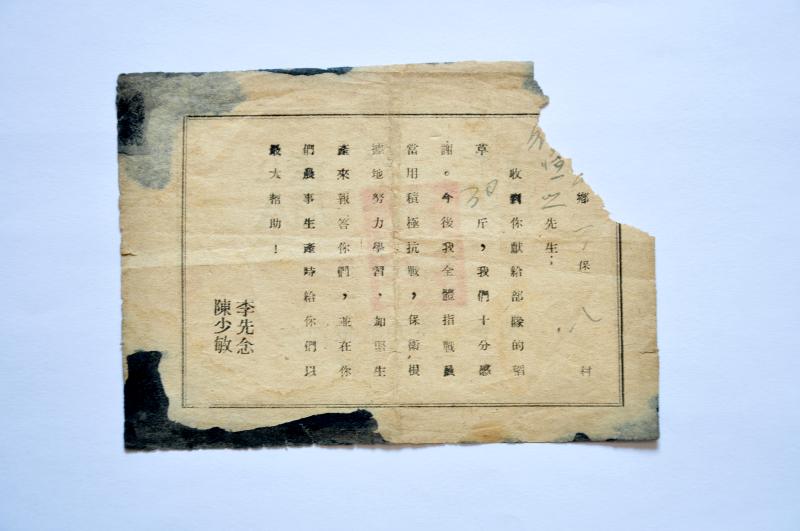 鄉 丁 保 八 村
恆之先生：
收到你獻給部隊的稻
草 30 斤，我們十分感
謝。今後我全體指戰員
當用積極抗戰，保衛根
據地努力學習，加緊生
產來報答你們，並在你
們農事生產時給你們以
最大帮助！
李先念
陳少敏